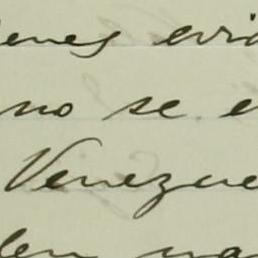 ienes evid
no se e
Venezue
den na